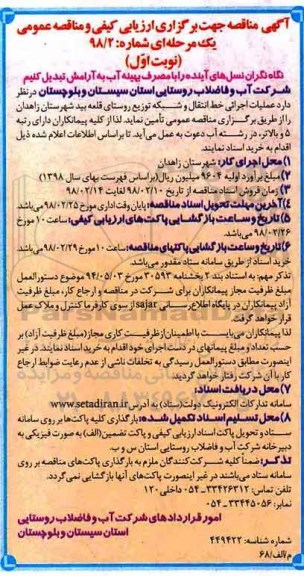 آگهی مناقصه جهت برگزاری ارزیابی کیفی و مناقصه عمومی
یک مرحله‌ای شماره: ۹۸/۲
(نوبت اوّل)
نگاه نگران نسل‌های آینده را با مصرف بهینه آب به آرامش تبدیل کنیم
شرکت آب و فاضلاب روستایی استان سیستان و بلوچستان در نظر
دارد عملیات اجرائی خط انتقال و شبکه توزیع روستای قلعه بید شهرستان زاهدان
را از طریق برگزاری مناقصه عمومی تأمین نماید. لذا از کلیه پیمانکاران دارای رتبه
۵ و بالاتر، در رشته آب دعوت به عمل می‌آید. تا براساس اطلاعات اعلام شده ذیل
اقدام به خرید اسناد نمایند.
۱) محل اجرای کار: شهرستان زاهدان
۲) مبلغ برآورد اولیه ۹۶۰۴ میلیون ریال (براساس فهرست بهای سال ۱۳۹۸)
۳) زمان فروش اسناد مناقصه از تاریخ ۹۸/۰۲/۱۰ لغایت ۹۸/۰۲/۱۴
۴) آخرین مهلت تحویل اسناد مناقصه: پایان وقت اداری مورخ ۹۸/۰۲/۲۵ می‌باشد
۵) تاریخ و ساعت بازگشایی پاکت‌های ارزیابی کیفی: ساعت ۱۰ مورخ
۹۸/۰۲/۲۶ می‌باشد.
۶) تاریخ و ساعت بازگشایی پاکتهای مناقصه: ساعت ۱۰ مورخ ۹۸/۰۲/۲۹ می‌باشد.
خرید اسناد از طریق سامانه ستاد مقدور می‌باشد.
تذکر مهم: به استناد بند ۲ بخشنامه ۳۰۵۹۳ مورخ ۹۴/۰۵/۰۳ موضوع دستورالعمل
مبلغ ظرفیت مجاز پیمانکاران برای شرکت در مناقصه و ارجاع کار، مبلغ ظرفیت
آزاد پیمانکاران در پایگاه اطلاع‌رسانی sajar از سوی کارفرما کنترل و ملاک عمل
قرار خواهد گرفت.
لذا پیمانکاران می‌بایست با اطمینان از ظرفیت کاری مجاز (مبلغ ظرفیت آزاد) بر
حسب تعداد و مبلغ پیمانهای در دست اجرای خود اقدام به خرید اسناد نمایند. در غیر
اینصورت مطابق دستورالعمل رسیدگی به تخلفات ناشی از عدم رعایت ضوابط ارجاع
کار با آن شرکت رفتار خواهد گردید.
۷) محل دریافت اسناد:
سامانه تدارکات الکترونیک دولت (ستاد) به آدرس www.setadiran.ir
۸) محل تسلیم اسناد تکمیل شده: بارگذاری کلیه پاکت‌ها بر روی سامانه
ستاد و تحویل پاکت اسناد ارزیابی کیفی و پاکت تضمین (الف) به صورت فیزیکی به
دبیرخانه شرکت آب و فاضلاب روستایی استان س و ب.
تذکر: ضمناً کلیه شرکت‌کنندگان ملزم به بارگذاری پاکت‌های مناقصه بر روی
سامانه ستاد می‌باشند در غیر اینصورت پاکت‌های آنها بازگشایی نمی‌گردد.
تلفن تماس: ۳۳۴۲۶۳۱۲-۰۵۴ داخلی ۱۲۰
نمابر: ۳۳۴۴۵۰۵۶-۰۵۴
امور قراردادهای شرکت آب و فاضلاب روستایی
استان سیستان و بلوچستان
شماره شناسه: ۴۴۹۴۲۲
م/الف/۶۸